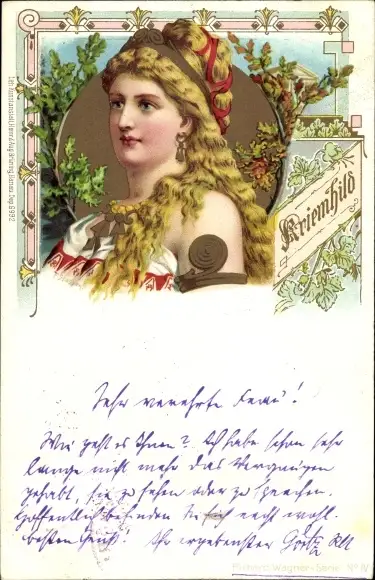 Kriemhild
Sehr verehrte Frau!
Wie geht es Ihnen? Ich habe schon sehr
lange nicht mehr das Vergnügen
gehabt, sie zu sehen oder zu sprechen.
Hoffentlich befinden Sie sich recht wohl.
besten Gruß! Ihr ergebenster
Richard Wagner-Serie No IV